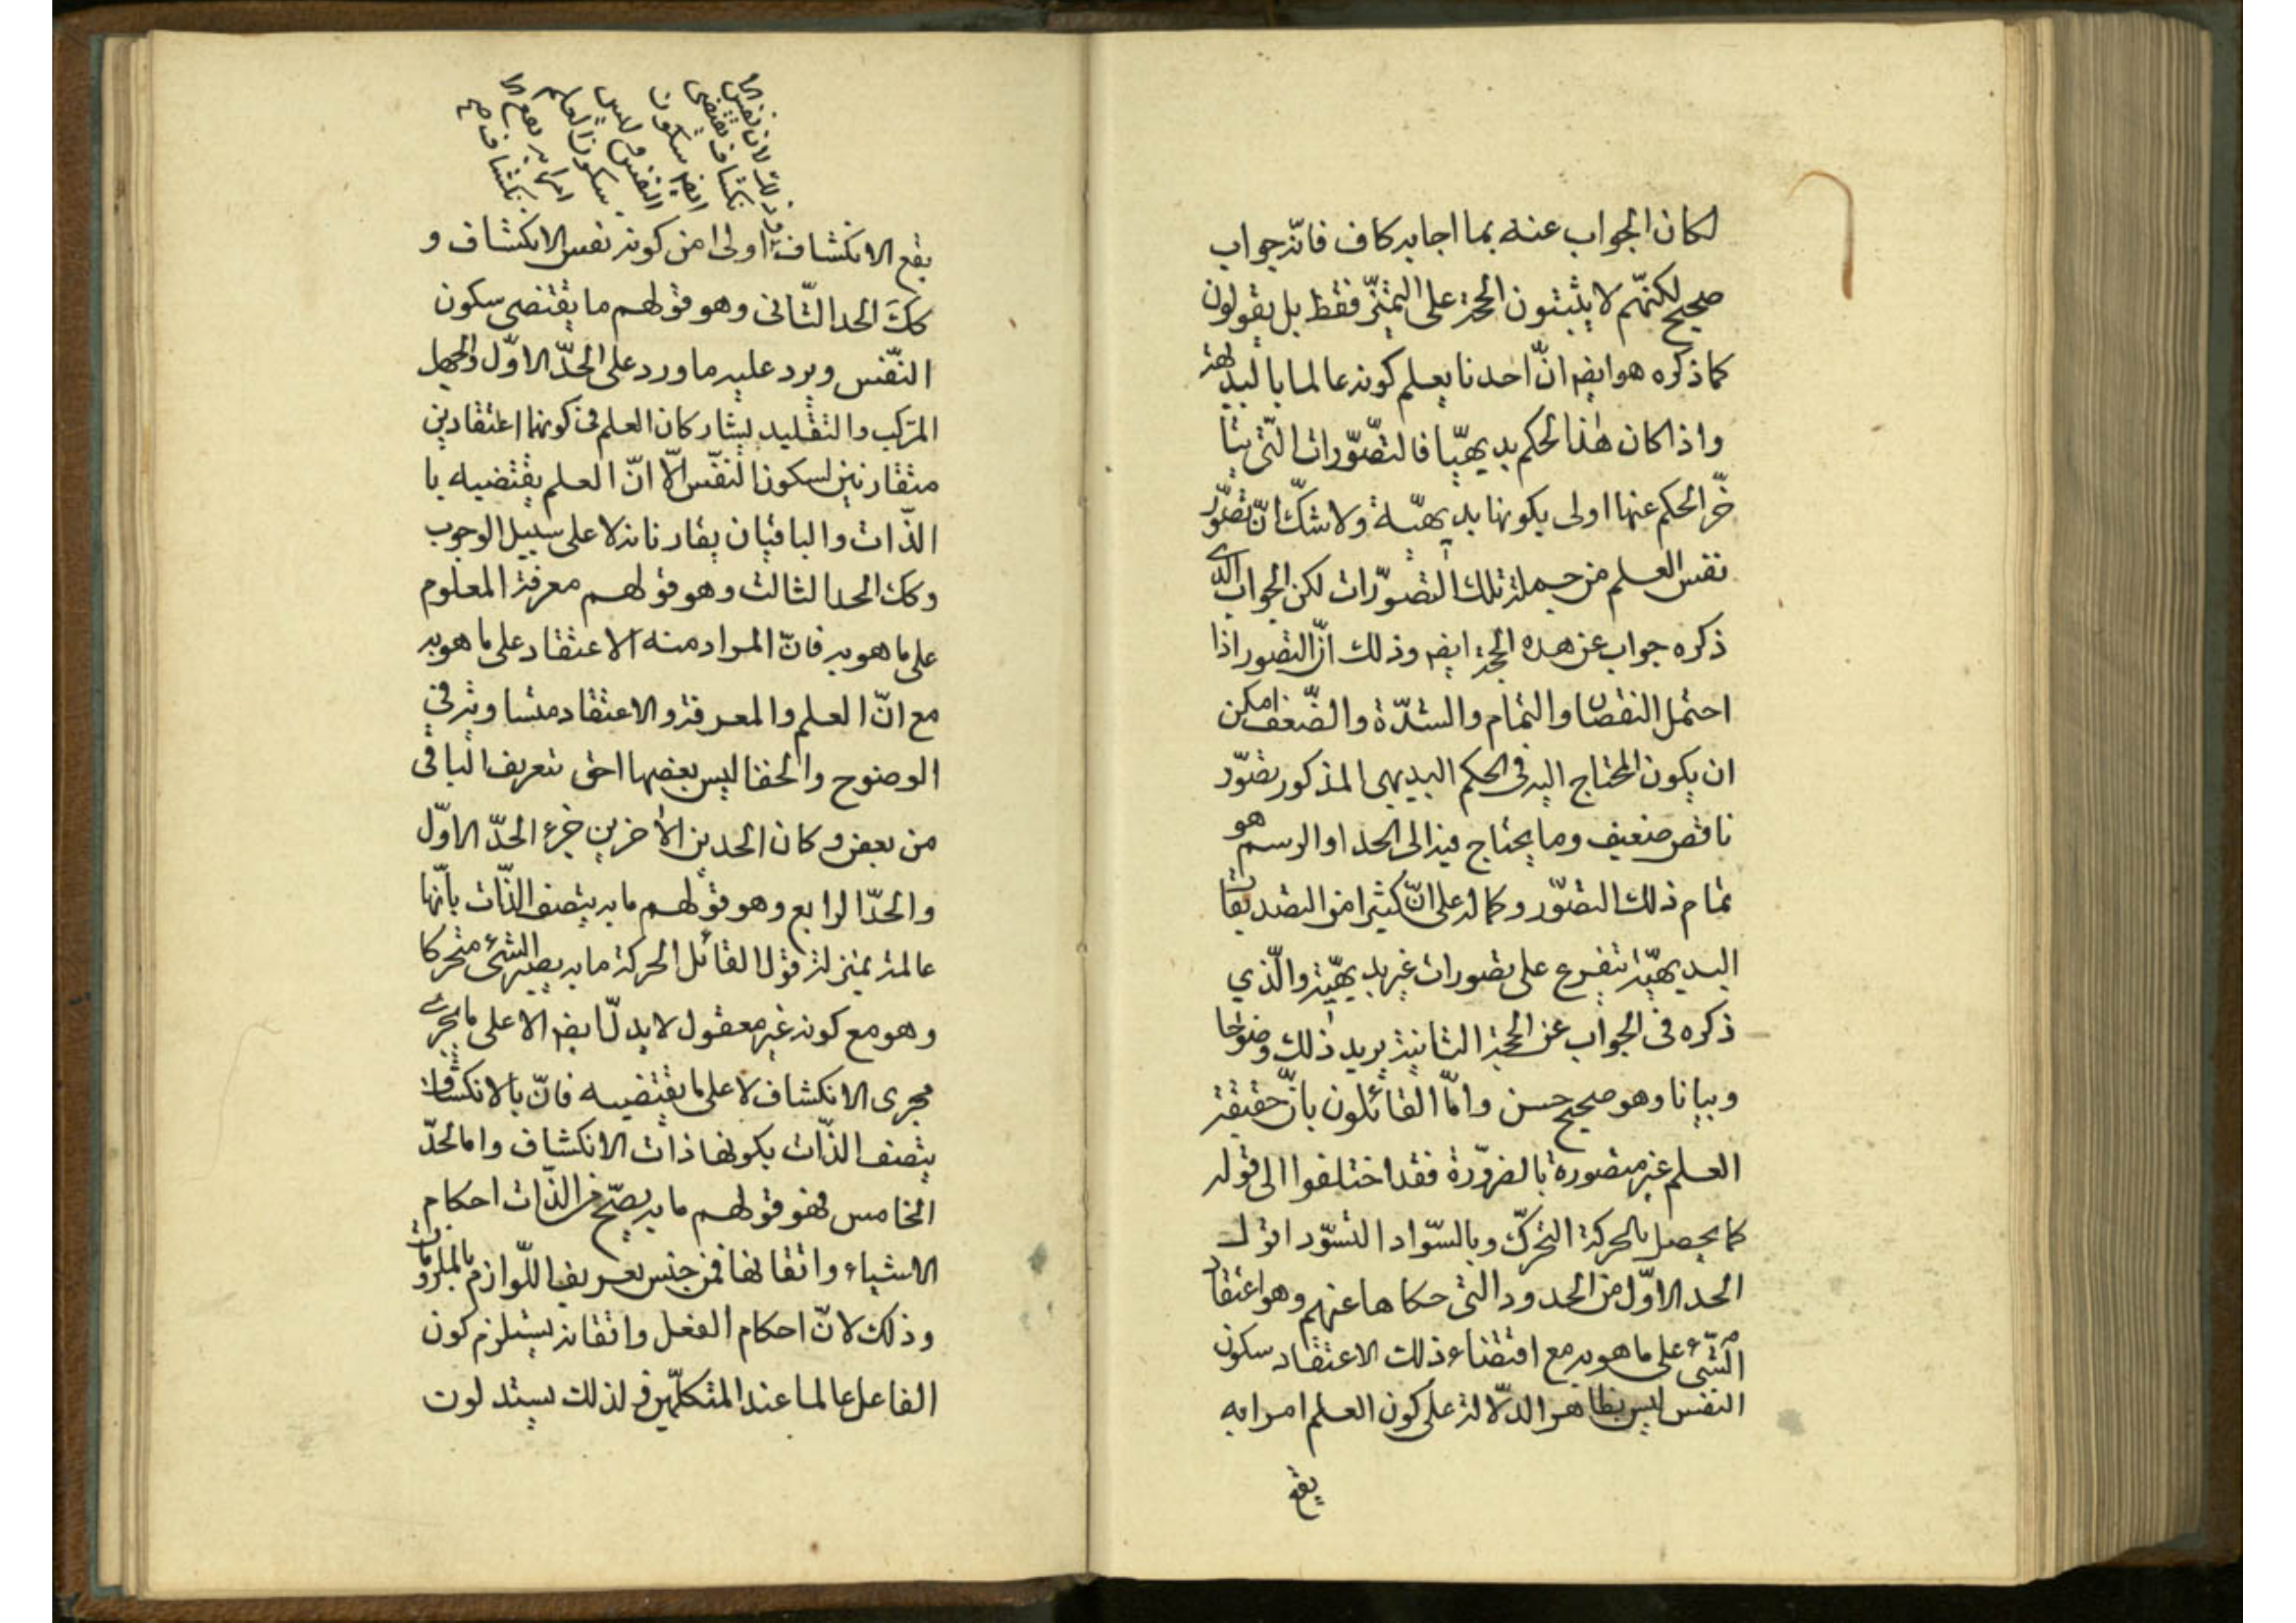 لكان الجواب عنه بما اجا به كاف فانّه جواب
صحيح لكنّهم لا يثبتون الحجة على التميّز فقط بل يقولون
كما ذكره هو ايضا انّ احدنا يعلم كونه عالما بالبديهة
واذا كان هذا الحكم بديهيّا فالتصّورات الّتى يتا
خّر الحكم عنها اولى بكونها بديهيّة ولا شكّ انّ تصّور
نفس العلم من جملة تلك التصّورات لكن الجواب الذى
ذكره جواب عن هذه الحجة ايضا وذلك انّ التصور اذا
احتمل النقصان والتمام والشدّة والضّعف امكن
ان يكون المحتاج اليه فى الحكم البديهى المذكور تصّور
ناقص ضعيف وما يحتاج فيه الى الحد او الرسم هو
تمام ذلك التصّور وكماله على انّ كثيرا من التصديقات
البديهيّة تتفرع على تصورات غير بديهيّة والّذي
ذكره فى الجواب عن الحجة الثانية يزيد ذلك وضوحا
وبيانا وهو صحيح حسن وامّا القائلون بانّ حقيقة
العلم غير متصورة بالضرّورة فقد اختلفوا الى قوله
كما يحصل بالحركة التحرّك وبالسّواد التسّود اقول
الحد الاوّل من الحدود التى حكاها عنهم وهو اعتقاد
الشىّء على ما هو به مع اقتضاء ذلك الاعتقاد سكون
النفس ليس بظاهر الدلّالة على كون العلم امرا به
يقع
وذلك لان نفس الا
نكشاف يقتضى
ايضا سكون
النفس وليس
سكون العلم
امرا به يقع الا
نكشاف صح
يقع الانكشاف اولى من كونه نفس الانكشاف و
كك الحد الثّانى وهو قولهم ما يقتضى سكون
النّفس ويرد عليه ما ورد على الحدّ الاوّل والجهل
المركب والتقليد يشاركان العلم فى كونهما اعتقادين
متقارنين لسكون النفّس الّا انّ العلم يقتضيه با
الذّات والباقيان يقارنانه لا على سبيل الوجوب
وكك الحد الثالث وهو قولهم معرفة المعلوم
على ما هو به فانّ المراد منه الاعتقاد على ما هو به
مع انّ العلم والمعرفة والاعتقاد متساوية فى
الوضوح والخفا ليس بعضها احق بتعريف الباقى
من بعض وكان الحدين الاخرين جزء الحدّ الاوّل
والحدّ الرابع وهو قولهم ما به يتصف الذّات بانّها
عالمة بمنزلة قول القائل الحركة ما به يصير الشىء متحركا
وهو مع كونه غير معقول لا يدلّ ايضا الا على ما يجرى
مجرى الانكشاف لا على ما يقتضيه فانّ بالانكشاف
يتصف الذّات بكونها ذات الانكشاف واما الحدّ
الخامس فهو قولهم ما به يصحّ من الذّات احكام
الاشياء واتقانها فمن جنس تعريف اللّوازم بالملزومات
وذلك لانّ احكام الفعل واتقانه يستلزم كون
الفاعل عالما عند المتكلّمين ولذلك يستدلون